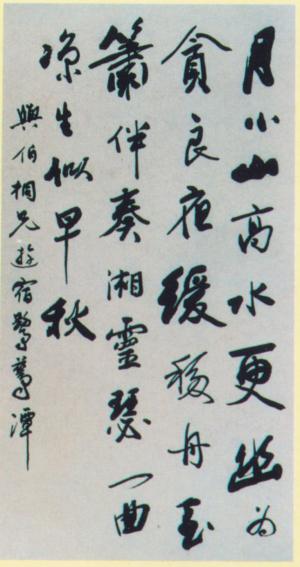 月小山高水更幽为
貪良夜緩移舟玉
簫伴奏湘靈瑟一曲
凉生似早秋
與伯桐兄遊宿鷺鷥潭